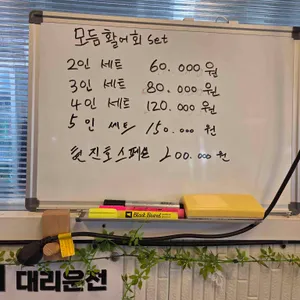 모듬활어회 set
2인 세트 60.000원
3인 세트 80.000원
4인 세트 120.000원
5인 세트 150.000원
진호스페셜 200.000원
대리운전